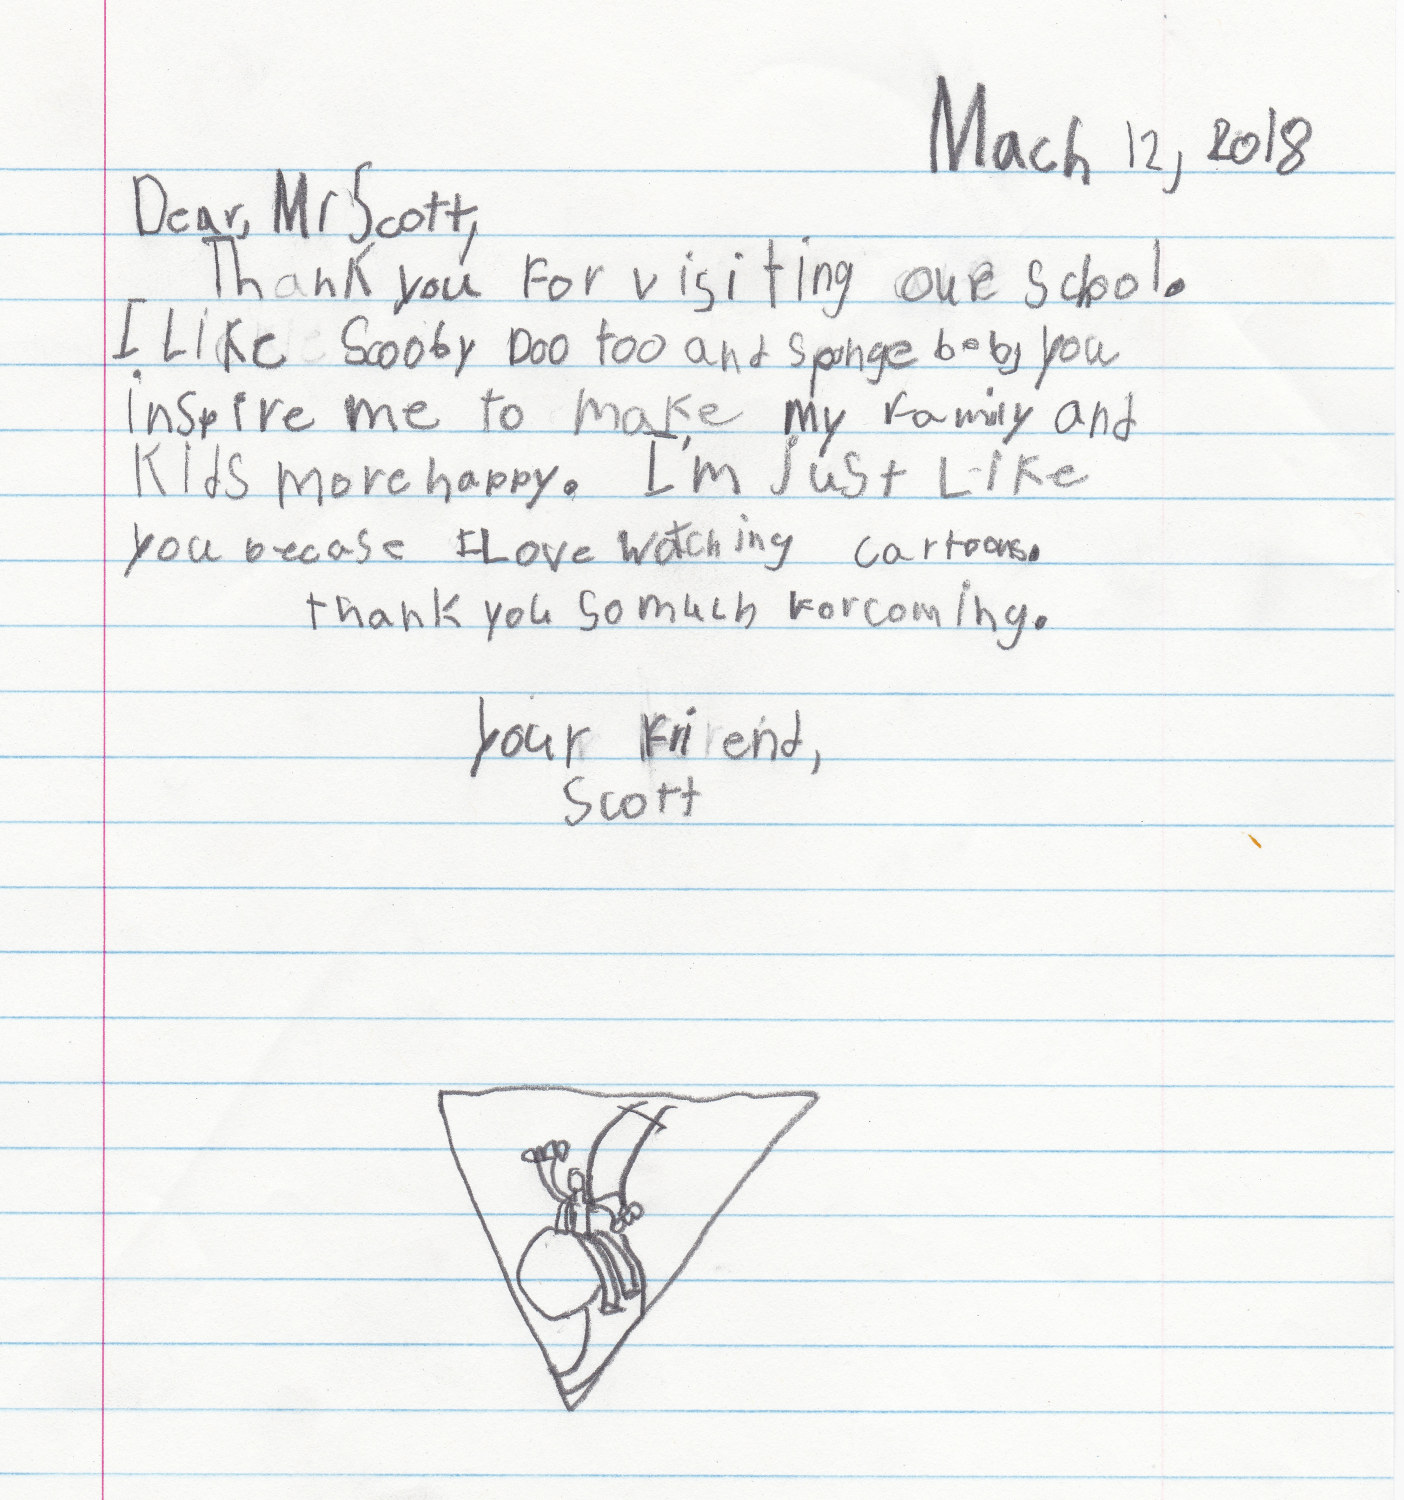 Mach 12, 2018
Dear, Mr Scott,
Thank you For visiting our school.
I Like Scooby Doo too and sponge bob, you
inspire me to make my Family and
Kids more happy. I'm just Like
you becase I Love watching cartoons.
thank you so much For coming.
your Friend,
Scott